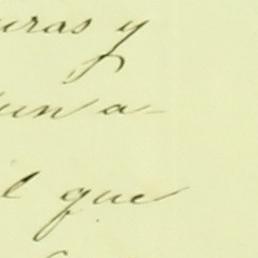 uras y
un a-
l que